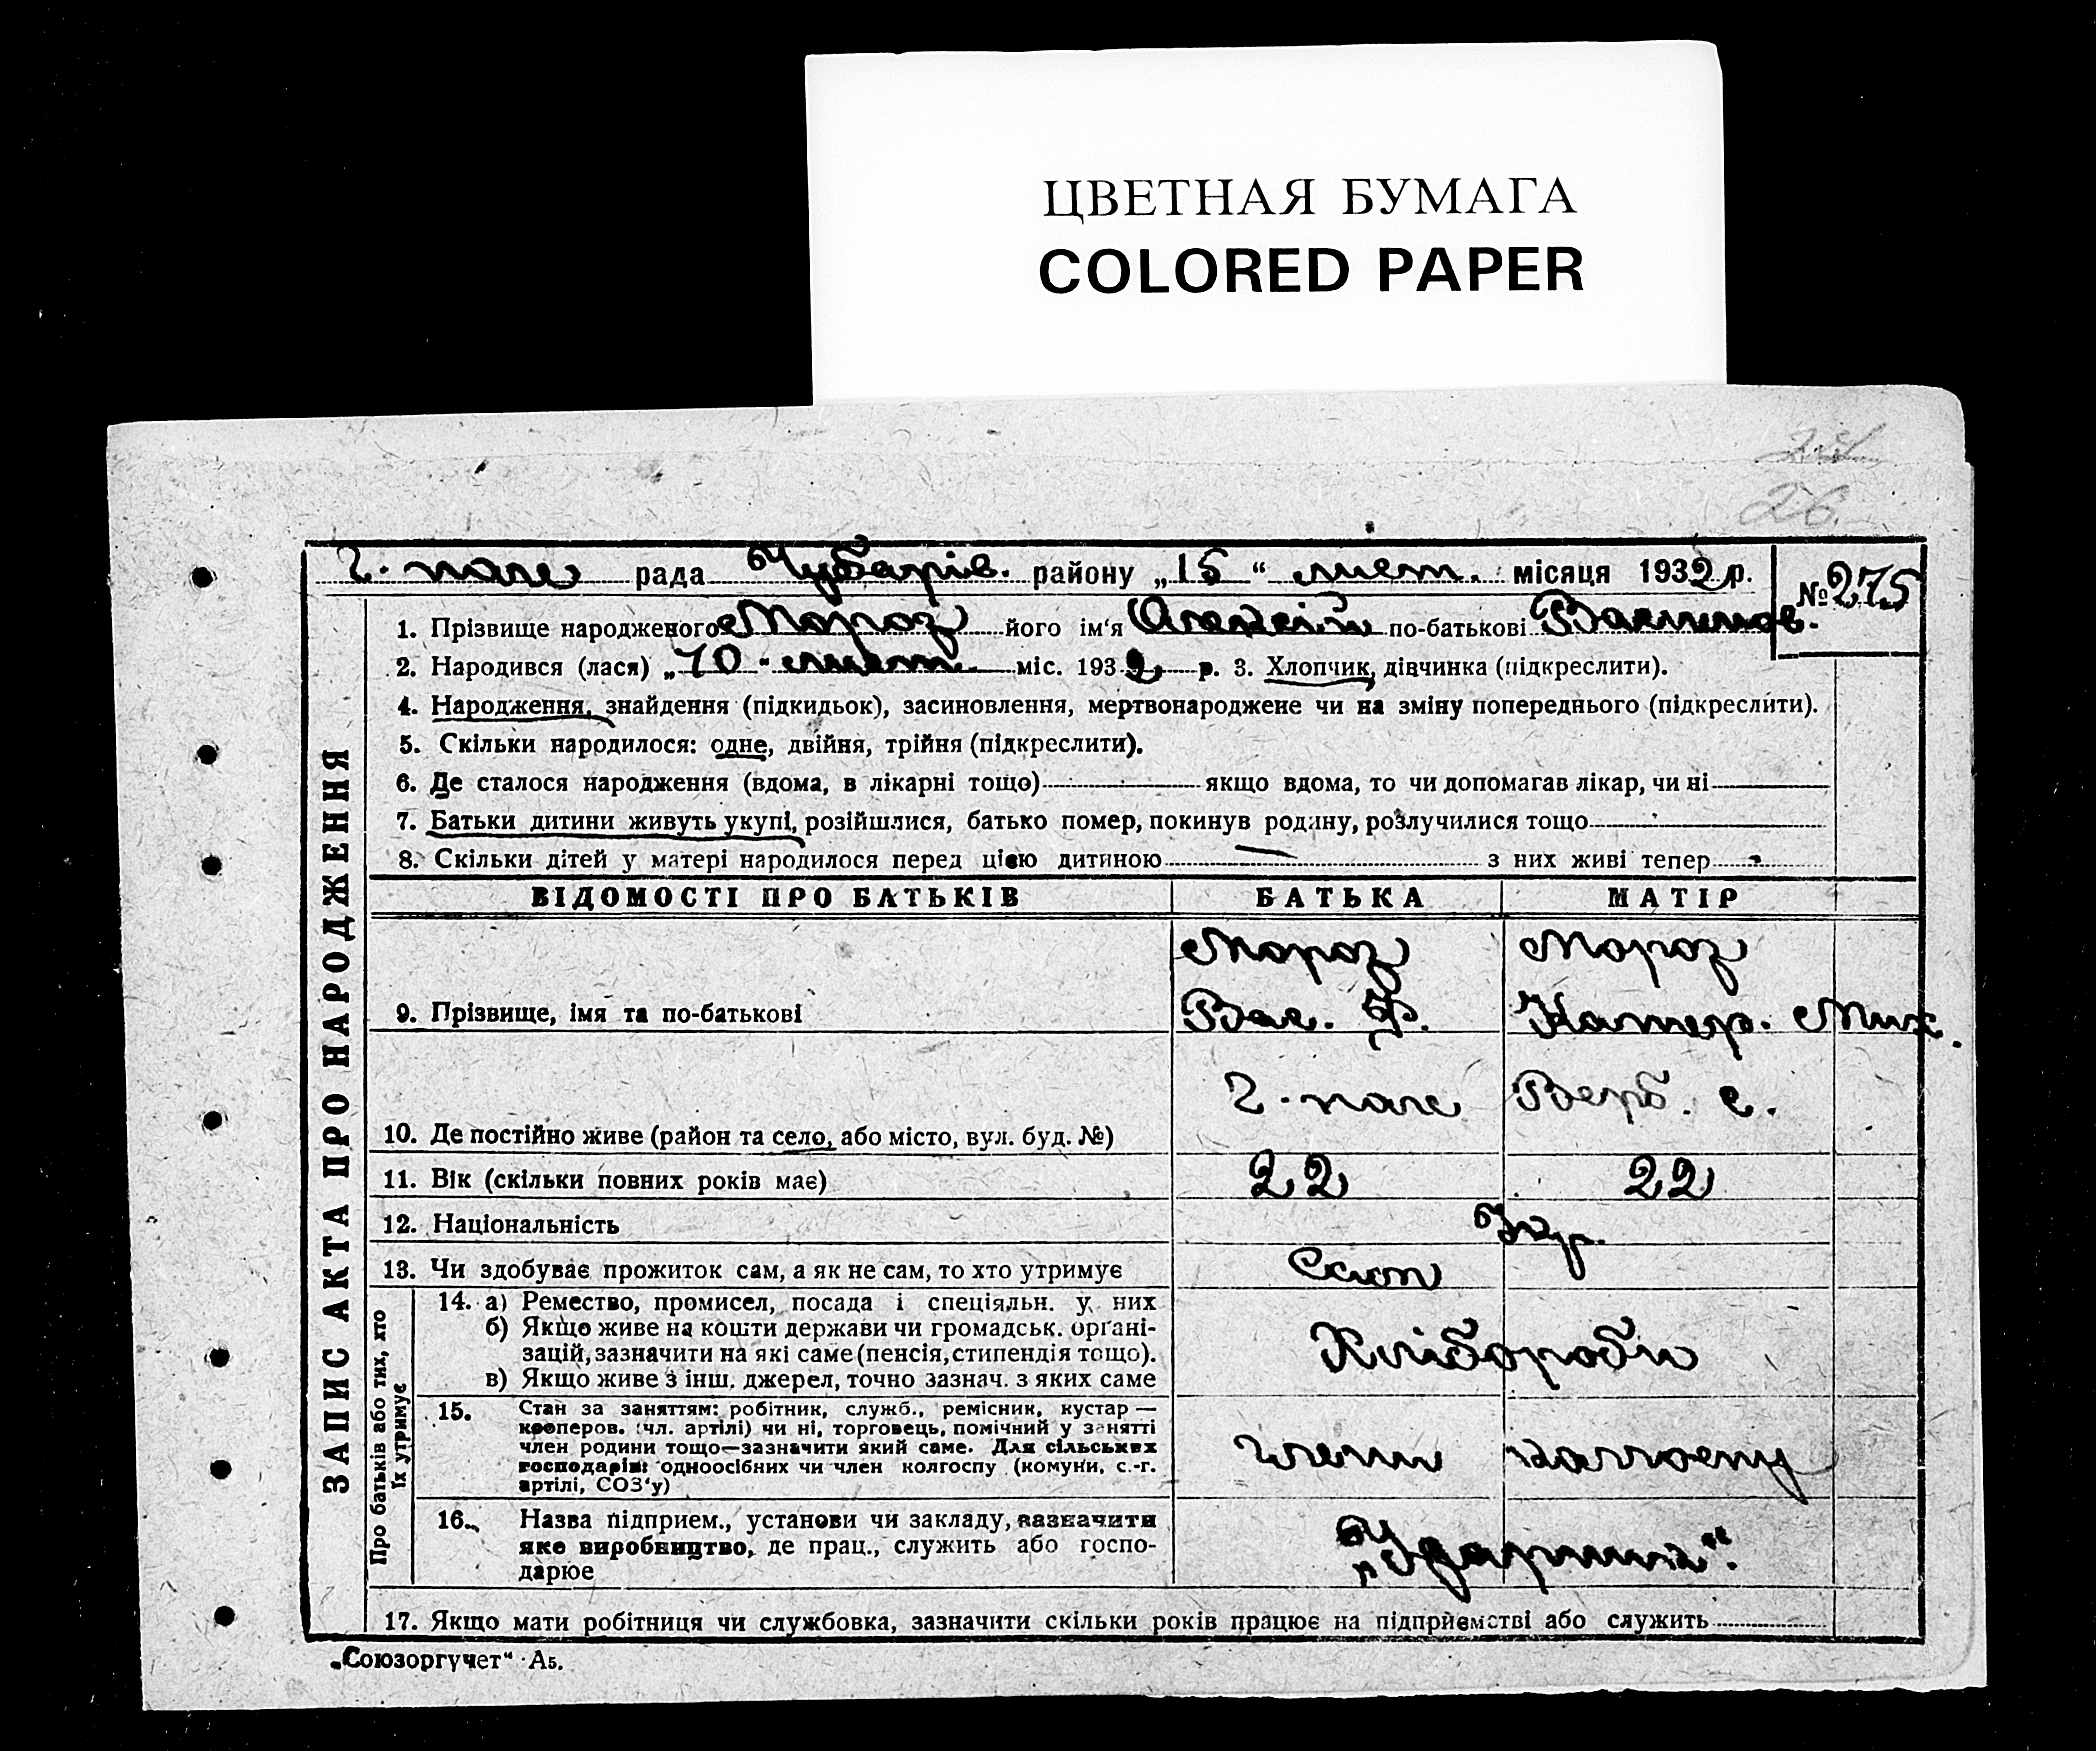 ЦВЕТНАЯ БУМАГА
COLORED PAPER
26
Г. поле рада Чубарів. району „15“ лют. місяця 1932 р.
№ 275
1. Прізвище народженого Мороз його ім‘я Андрій по-батькові
2. Народився (лася) „10“ лют. міс. 1932 р. 3. Хлопчик, дівчинка (підкреслити).
4. Народження, знайдення (підкидьок), засиновлення, мертвонароджене чи на зміну попереднього (підкреслити).
5. Скільки народилося: одне, двійня, трійня (підкреслити).
6. Де сталося народження (вдома, в лікарні тощо) якщо вдома, то чи допомагав лікар, чи ні
7. Батьки дитини живуть укупі, розійшлися, батько помер, покинув родину, розлучилися тощо
8. Скільки дітей у матері народилося перед цією дитиною — з них живі тепер -
ВІДОМОСТІ ПРО БАТЬКІВ БАТЬКА МАТІР
Мороз Мороз
9. Прізвище, імя та по-батькові Вас. Ф. Катер. Мих.
Г. поле Верб. с.
10. Де постійно живе (район та село, або місто, вул. буд. №)
11. Вік (скільки повних років має) 22 22
12. Національність Укр.
13. Чи здобуває прожиток сам, а як не сам, то хто утримує Сам
14. а) Ремество, промисел, посада і спеціяльн. у них
б) Якщо живе на кошти держави чи громадськ. органі-
зацій, зазначити на які саме (пенсія, стипендія тощо).
в) Якщо живе з інш. джерел, точно зазнач. з яких саме
Хлібороби
15. Стан за заняттям: робітник, служб., ремісник, кустар —
кооперов. (чл. артілі) чи ні, торговець, помічний у занятті
член родини тощо—зазначити який саме. Для сільських
господарів: одноосібних чи член колгоспу (комуни, с.-г.
артілі, СОЗ‘у)
члени колгоспу
16. Назва підприєм., установи чи закладу, зазначити
яке виробництво, де прац., служить або госпо-
дарює
„Ударник“.
17. Якщо мати робітниця чи службовка, зазначити скільки років працює на підприємстві або служить
ЗАПИС АКТА ПРО НАРОДЖЕННЯ
Про батьків або тих, хто
їх утримує
„Союзоргучет“ А5.